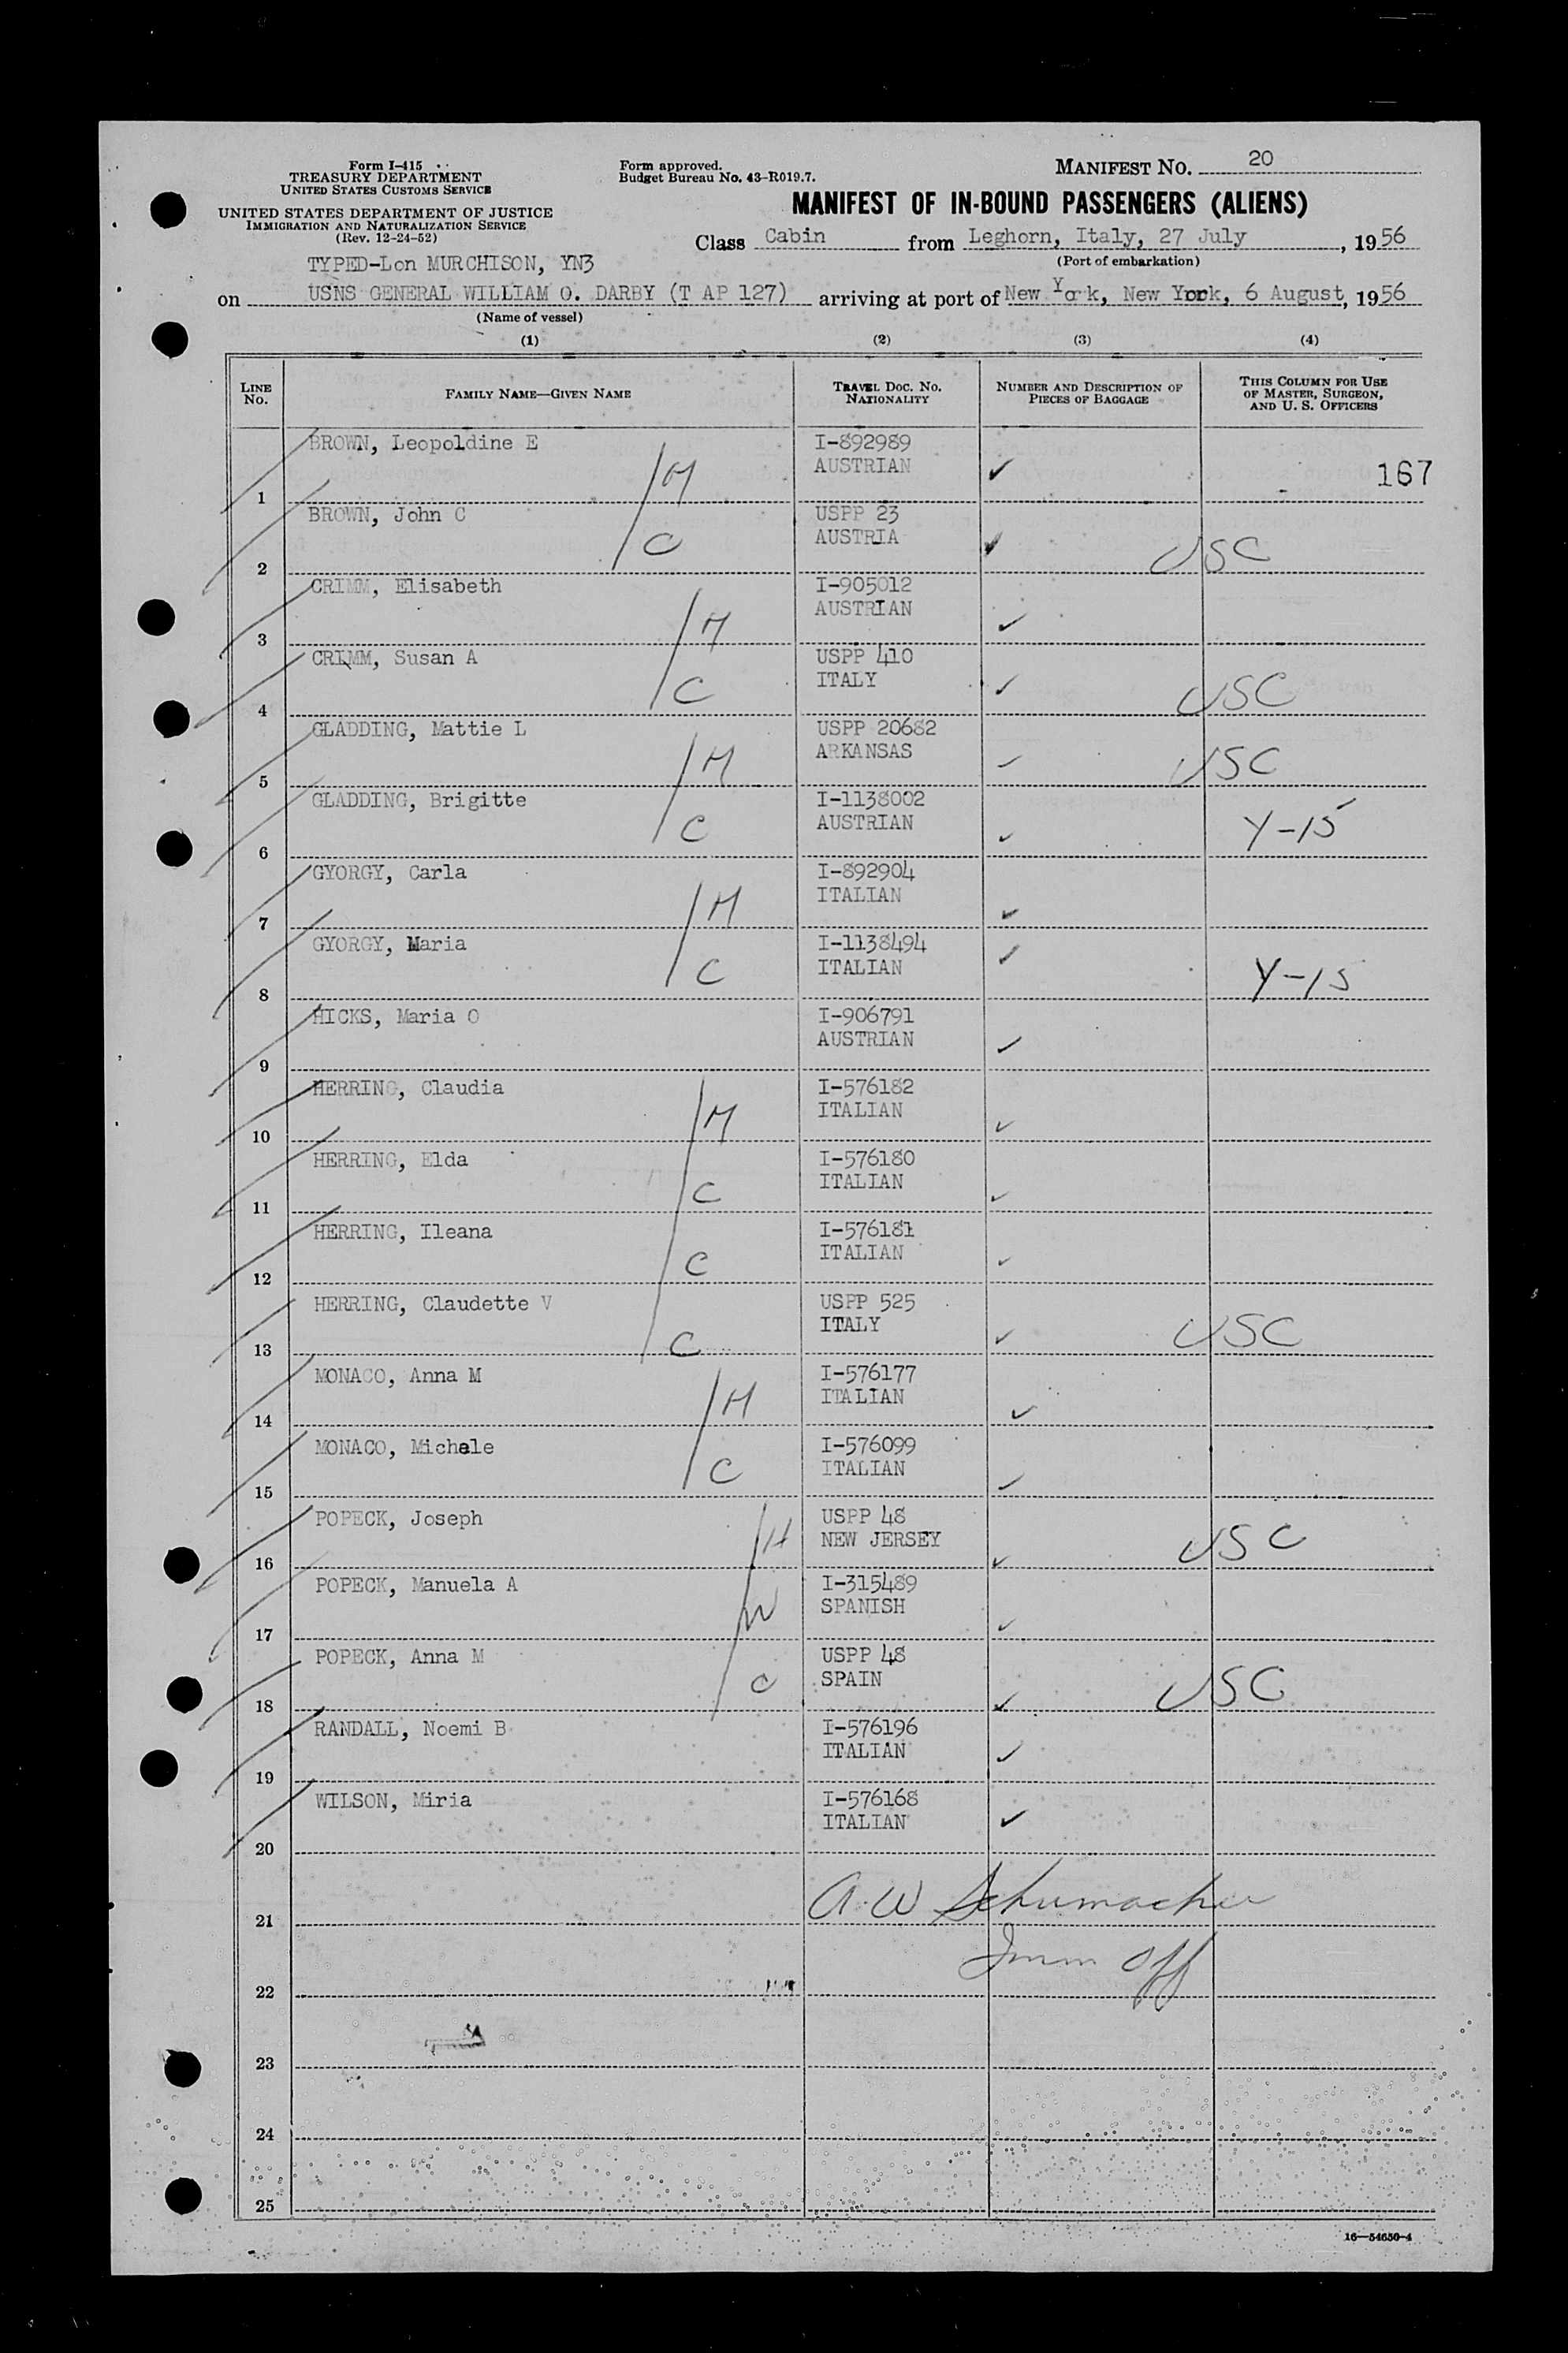 Form I-415
TREASURY DEPARTMENT
UNITED STATES CUSTOMS SERVICE
UNITED STATES DEPARTMENT OF JUSTICE
IMMIGRATION AND NATURALIZATION SERVICE
(Rev. 12-24-52)
Form approved.
Budget Bureau No. 43-R019.7.
MANIFEST No. 20
MANIFEST OF IN-BOUND PASSENGERS (ALIENS)
Class Cabin from Leghorn, Italy, 27 July, 1956
(Port of embarkation)
TYPED-Lon MURCHISON, YN3
on USNS GENERAL WILLIAM O. DARBY (T AP 127) arriving at port of New York, New York, 6 August, 1956
(Name of vessel)
(1) (2) (3) (4)
LINE No. FAMILY NAME—GIVEN NAME TRAVEL DOC. NO. NATIONALITY NUMBER AND DESCRIPTION OF PIECES OF BAGGAGE THIS COLUMN FOR USE OF MASTER, SURGEON, AND U. S. OFFICERS
BROWN, Leopoldine E I-892989
1 M AUSTRIAN ✓ 167
BROWN, John C USPP 23
2 C AUSTRIA ✓ USC
CRIMM, Elisabeth I-905012
3 M AUSTRIAN ✓
CRIMM, Susan A USPP 410
4 C ITALY ✓ USC
GLADDING, Mattie L USPP 20682
5 M ARKANSAS ✓ USC
GLADDING, Brigitte I-1138002
6 C AUSTRIAN ✓ Y-15
GYORGY, Carla I-892904
7 M ITALIAN ✓
GYORGY, Maria I-1138494
8 C ITALIAN ✓ Y-15
HICKS, Maria O I-906791
9 AUSTRIAN ✓
HERRING, Claudia I-576182
10 M ITALIAN ✓
HERRING, Elda I-576180
11 C ITALIAN ✓
HERRING, Ileana I-576181
12 C ITALIAN ✓
HERRING, Claudette V USPP 525
13 C ITALY ✓ USC
MONACO, Anna M I-576177
14 M ITALIAN ✓
MONACO, Michele I-576099
15 C ITALIAN ✓
POPECK, Joseph USPP 48
16 H NEW JERSEY ✓ USC
POPECK, Manuela A I-315489
17 W SPANISH ✓
POPECK, Anna M USPP 48
18 C SPAIN ✓ USC
RANDALL, Noemi B I-576196
19 ITALIAN ✓
WILSON, Miria I-576168
20 ITALIAN ✓
21 A. W Schumacher
22 Imm Off
23
24
25
16—54650-4